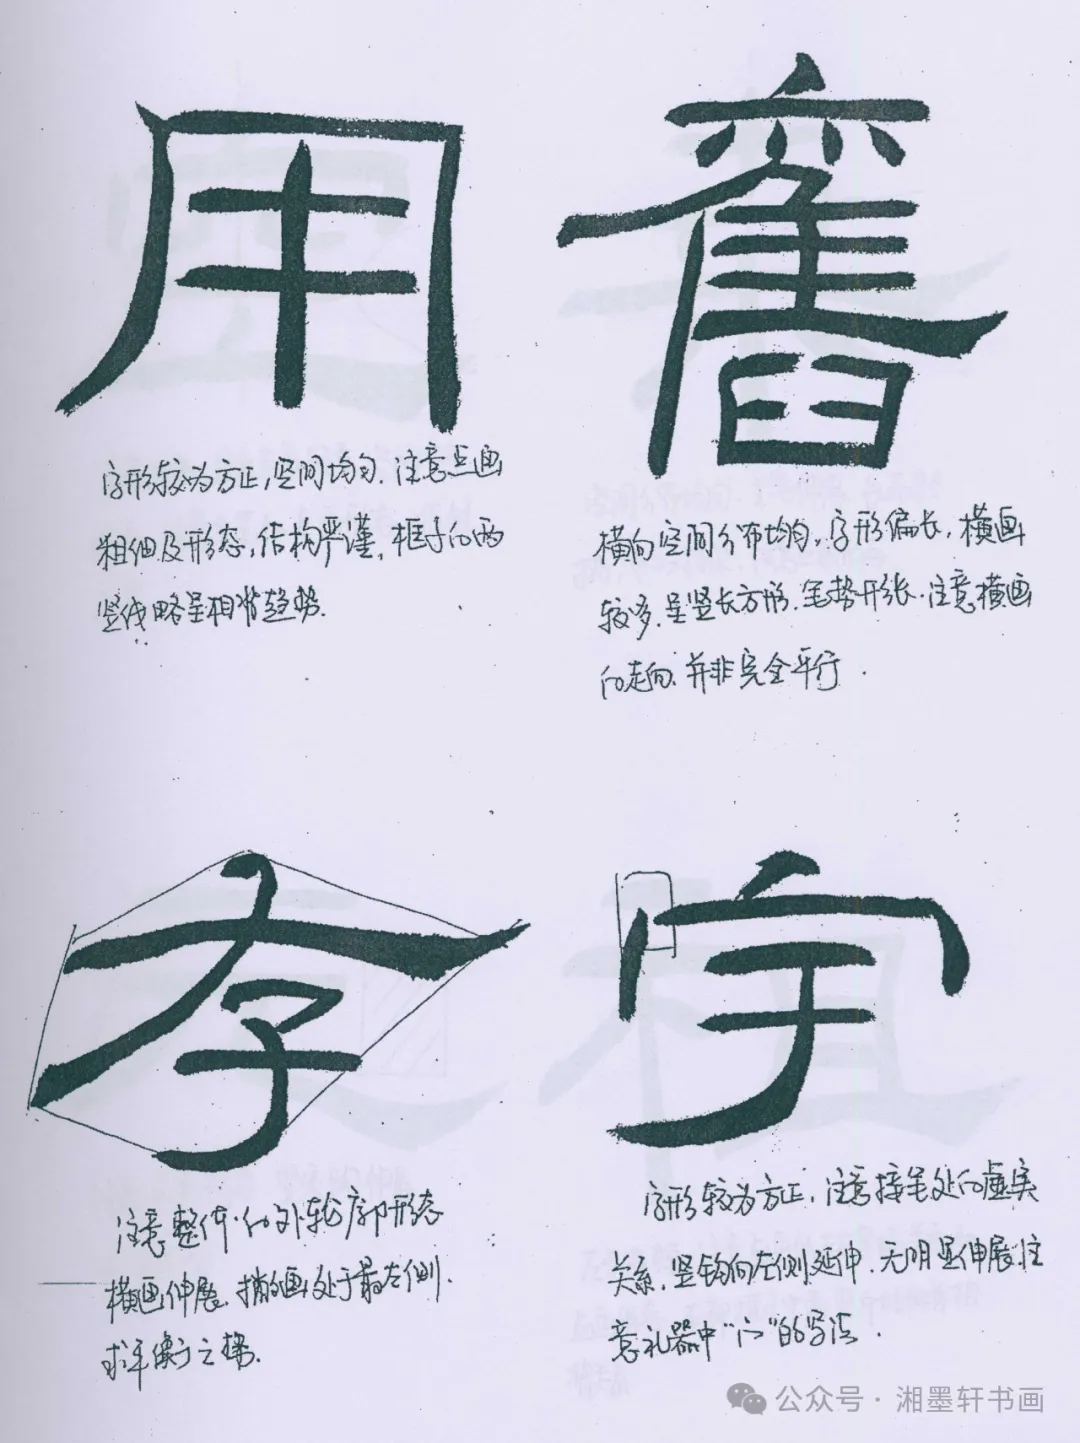 用
舊
字形较为方正,空间均匀.注意点画
粗细及形态,结构严谨,框子的两
竖线略呈相背趋势.
横向空间分布均匀,字形偏长,横画
较多,呈竖长方形.笔势开张.注意横画
的走向,并非完全平行.
孝
宇
注意整体的外轮廓形态
横画伸展,撇画处于最左侧.
求平衡之势.
字形较为方正,注意接笔处的虚实
关系,竖钩向左侧延伸.无明显伸展,注
意礼器中“宀”的写法.
公众号·湘墨轩书画